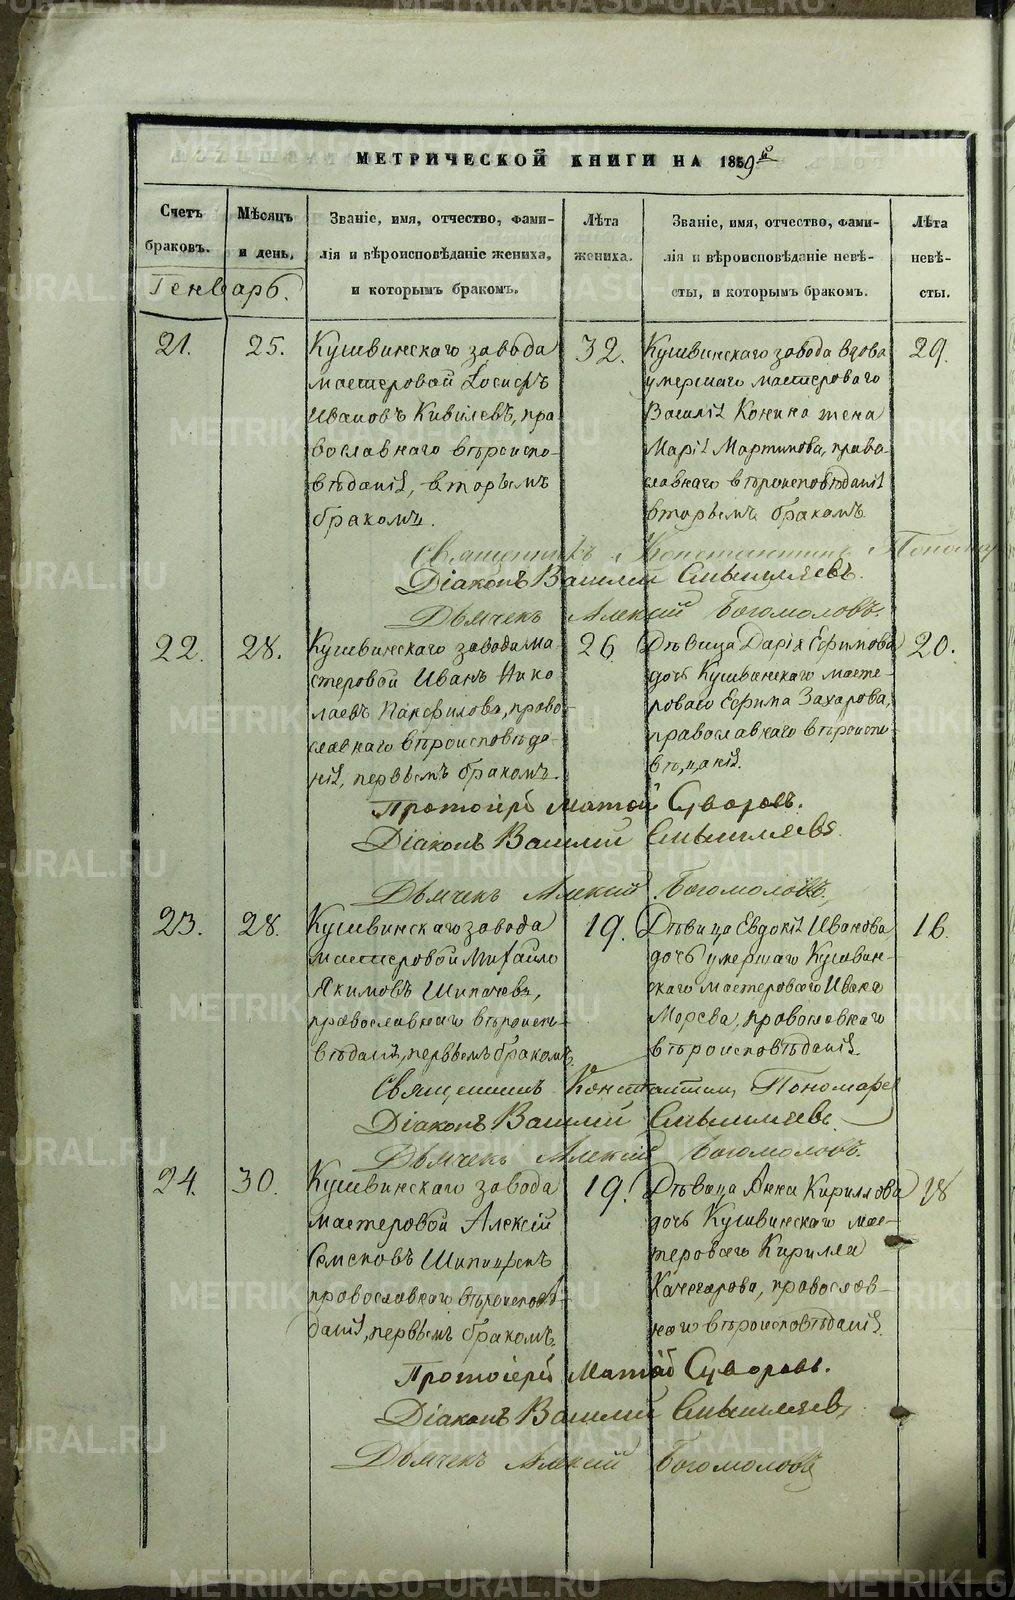 METRIKI.GASO-URAL.RU
МЕТРИЧЕСКОЙ КНИГИ НА 1859й
Счетъ браковъ.
Мѣсяцъ и день.
Званіе, имя, отчество, фами-
лія и вѣроисповѣданіе жениха,
и которымъ бракомъ.
Лѣта жениха.
Званіе, имя, отчество, фами-
лія и вѣроисповѣданіе невѣ-
сты, и которымъ бракомъ.
Лѣта невѣ-
сты.
Генварь.
21. 25.
Кушвинскаго завода
мастеровой Іосифъ
Ивановъ Кивилевъ, пра
вославнаго вѣроиспо-
вѣданія, вторымъ
бракомъ.
32.
Кушвинскаго завода вдова
умершаго мастероваго
Василія Конина жена
Марія Мартинова, право
славнаго вѣроисповѣданія
вторымъ бракомъ.
29.
Священникъ Константинъ Пономар
Діаконъ Василій Смышляевъ.
Дьячекъ Алексій Богомоловъ.
22. 28.
Кушвинскаго завода ма-
стеровой Иванъ Нико
лаевъ Панфилова, право-
славнаго вѣроисповѣда-
нія, первымъ бракомъ.
26
Дѣвица Дарія Ефимова
дочь Кушвинскаго масте-
роваго Ефима Захарова,
православнаго вѣроиспо-
вѣданія.
20.
Протоіерей Матѳій Суворовъ.
Діаконъ Василій Смышляевъ
Дьячекъ Алексій Богомоловъ,
23. 28.
Кушвинскаго завода
мастеровой Михайло
Якимовъ Шипачевъ,
православнаго вѣроиспо-
вѣданія, первымъ бракомъ.
19.
Дѣвица Евдокія Иванова
дочь умершаго Кушвин-
скаго мастероваго Ивана
Морева, православнаго
вѣроисповѣданія.
16.
Священникъ Константинъ Пономаре
Діаконъ Василій Смышляевъ.
Дьячекъ Алексій Богомоловъ.
24. 30.
Кушвинскаго завода
мастеровой Алексій
Семеновъ Шипицынъ
православнаго вѣроисповѣ-
данія, первымъ бракомъ.
19.
Дѣвица Анна Кириллова
дочь Кушвинскаго мас-
тероваго Кирилла
Качегарова, православ-
наго вѣроисповѣданія.
18
Протоіерей Матѳій Суворовъ.
Діаконъ Василій Смышляевъ
Дьячекъ Алексій Богомоловъ